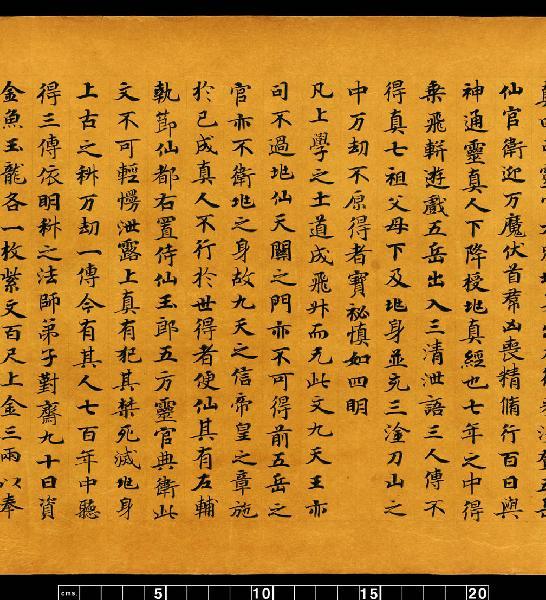 仙官衛迎万魔伏首羣凶喪精脩行百日與
神通靈真人下降授兆真經也七年之中得
乗飛軿遊戲五岳出入三清泄語三人傳不
得真七祖父母下及兆身並充三塗刀山之
中万劫不原得者寶祕慎如四明
凡上學之士道成飛升而无此文九天王亦
司不過地仙天關之門亦不可得前五岳之
官亦不衛兆之身故九天之信帝皇之章施
於已成真人不行於世得者便仙其有左輔
執節仙都右置侍仙玉郎五方靈官典衛此
文不可輕慢泄露上真有犯其禁死滅兆身
上古之科万劫一傳今有其人七百年中聽
得三傳依明科之法師弟子對齋九十日資
金魚玉龍各一枚紫文百尺上金三兩以奉
cms. 5 10 15 20